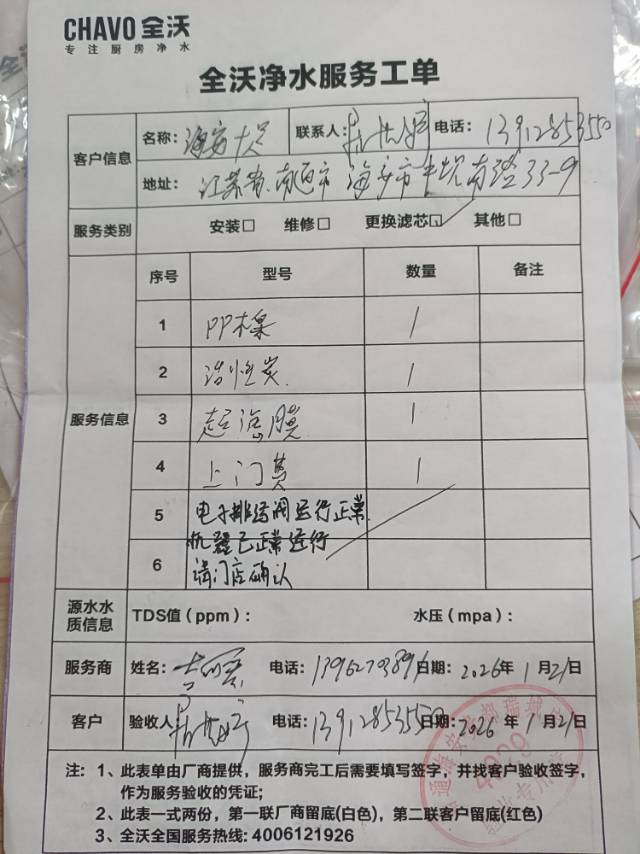 CHAVO 全沃
专注厨房净水
全沃净水服务工单
客户信息
名称: 海安大足 联系人: 电话: 13912853550
地址: 江苏省南通市海安市 南路33-9
服务类别 安装□ 维修□ 更换滤芯□ 其他□
服务信息
序号 型号 数量 备注
1 PP棉 1
2 活性炭 1
3 超滤膜 1
4 上门费 1
5 电子排污阀运行正常
机器已正常运行
6 请门店确认
源水水质信息 TDS值(ppm): 水压(mpa):
服务商 姓名: 电话: 日期: 2026年1月21日
客户 验收人: 电话: 13912853550 日期: 2026年1月21日
注: 1、此表单由厂商提供，服务商完工后需要填写签字，并找客户验收签字，
作为服务验收的凭证;
2、此表一式两份，第一联厂商留底(白色)，第二联客户留底(红色)
3、全沃全国服务热线: 4006121926